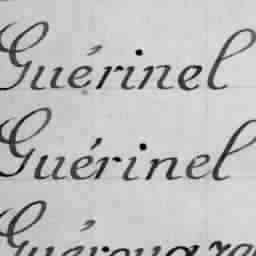 Guérinel
Guérinel